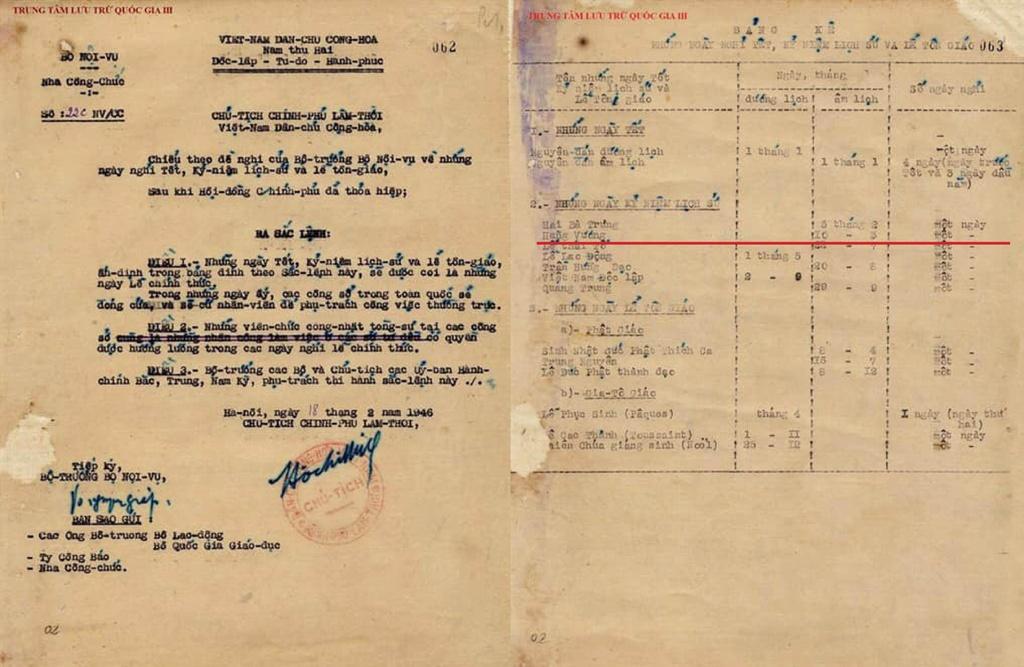 TRUNG TÂM LƯU TRỮ QUỐC GIA III
VIỆT-NAM DÂN-CHỦ CỘNG-HOÀ
Năm thứ Hai
Độc-lập - Tự-do - Hạnh-phúc
062
BỘ NỘI-VỤ
Nha Công-Chức
Số : 22c NV/CC
CHỦ-TỊCH CHÍNH-PHỦ LÂM-THỜI
Việt-Nam Dân-chủ Cộng-hòa,
Chiếu theo đề nghị của Bộ-trưởng Bộ Nội-vụ về những
ngày nghỉ Tết, Kỷ-niệm lịch-sử và lễ tôn-giáo,
Sau khi Hội-đồng Chính-phủ đã thỏa hiệp;
RA SẮC LỆNH:
ĐIỀU I.- Những ngày Tết, Kỷ-niệm lịch-sử và lễ tôn-giáo,
ấn-định trong bảng đính theo Sắc-lệnh này, sẽ được coi là những
ngày Lễ chính thức.
Trong những ngày ấy, các công sở trong toàn quốc sẽ
đóng cửa, và sẽ cử nhân-viên để phụ-trách công việc thường trực.
ĐIỀU 2.- Những viên-chức công-nhật tòng-sự tại các công
sở có quyền
được hưởng lương trong các ngày nghỉ lễ chính thức.
ĐIỀU 3.- Bộ-trưởng các Bộ và Chủ-tịch các uỷ-ban Hành-
chính Bắc, Trung, Nam Kỳ, phụ-trách thi hành sắc-lệnh này ./.
Hà-nội, ngày 18 tháng 2 năm 1946
CHỦ-TỊCH CHÍNH-PHỦ LÂM-THỜI,
Hồ Chí Minh
CHỦ-TỊCH
Tiếp ký,
BỘ-TRƯỞNG BỘ NỘI-VỤ,
BẢN SAO GỬI :
- Các Ông Bộ-trưởng Bộ Lao-động
Bộ Quốc Gia Giáo-dục
- Ty Công Báo
- Nha Công-chức.
02
TRUNG TÂM LƯU TRỮ QUỐC GIA III
BẢNG KÊ
NHỮNG NGÀY NGHỈ TẾT, KỶ NIỆM LỊCH SỬ VÀ LỄ TÔN GIÁO 063
Tên những ngày Tết
Kỷ niệm lịch sử và
Lễ Tôn giáo
Ngày, tháng
dương lịch
âm lịch
Số ngày nghỉ
1.- NHỮNG NGÀY TẾT
Nguyên đán dương lịch 1 tháng 1 một ngày
Nguyên đán âm lịch 1 tháng 1 4 ngày(ngày trước
Tết và 3 ngày đầu
năm)
2.- NHỮNG NGÀY KỶ NIỆM LỊCH SỬ
Hai Bà Trưng 6 tháng 2 một ngày
Hùng Vương 10 - 3 một -
Lê Thái Tổ một -
Lễ Lao Động 1 tháng 5 một -
Trần Hưng Đạo 20 - 8 một -
Việt Nam Độc lập 2 - 9 một -
Quang Trung 29 - 9 một -
3.- NHỮNG NGÀY LỄ TÔN GIÁO
a)- Phật Giáo
Sinh Nhật đức Phật Thích Ca 8 - 4 một -
Trung Nguyên 15 - 7 một -
Lễ Đức Phật thành đạo 8 - 12 một -
b)- Gia-Tô Giáo
Lễ Phục Sinh (Pâques) tháng 4 1 ngày (ngày thứ
hai)
Lễ Các Thánh (Toussaint) 1 - 11 một ngày
Thiên Chúa giáng sinh (Noel) 25 - 12 một -
02